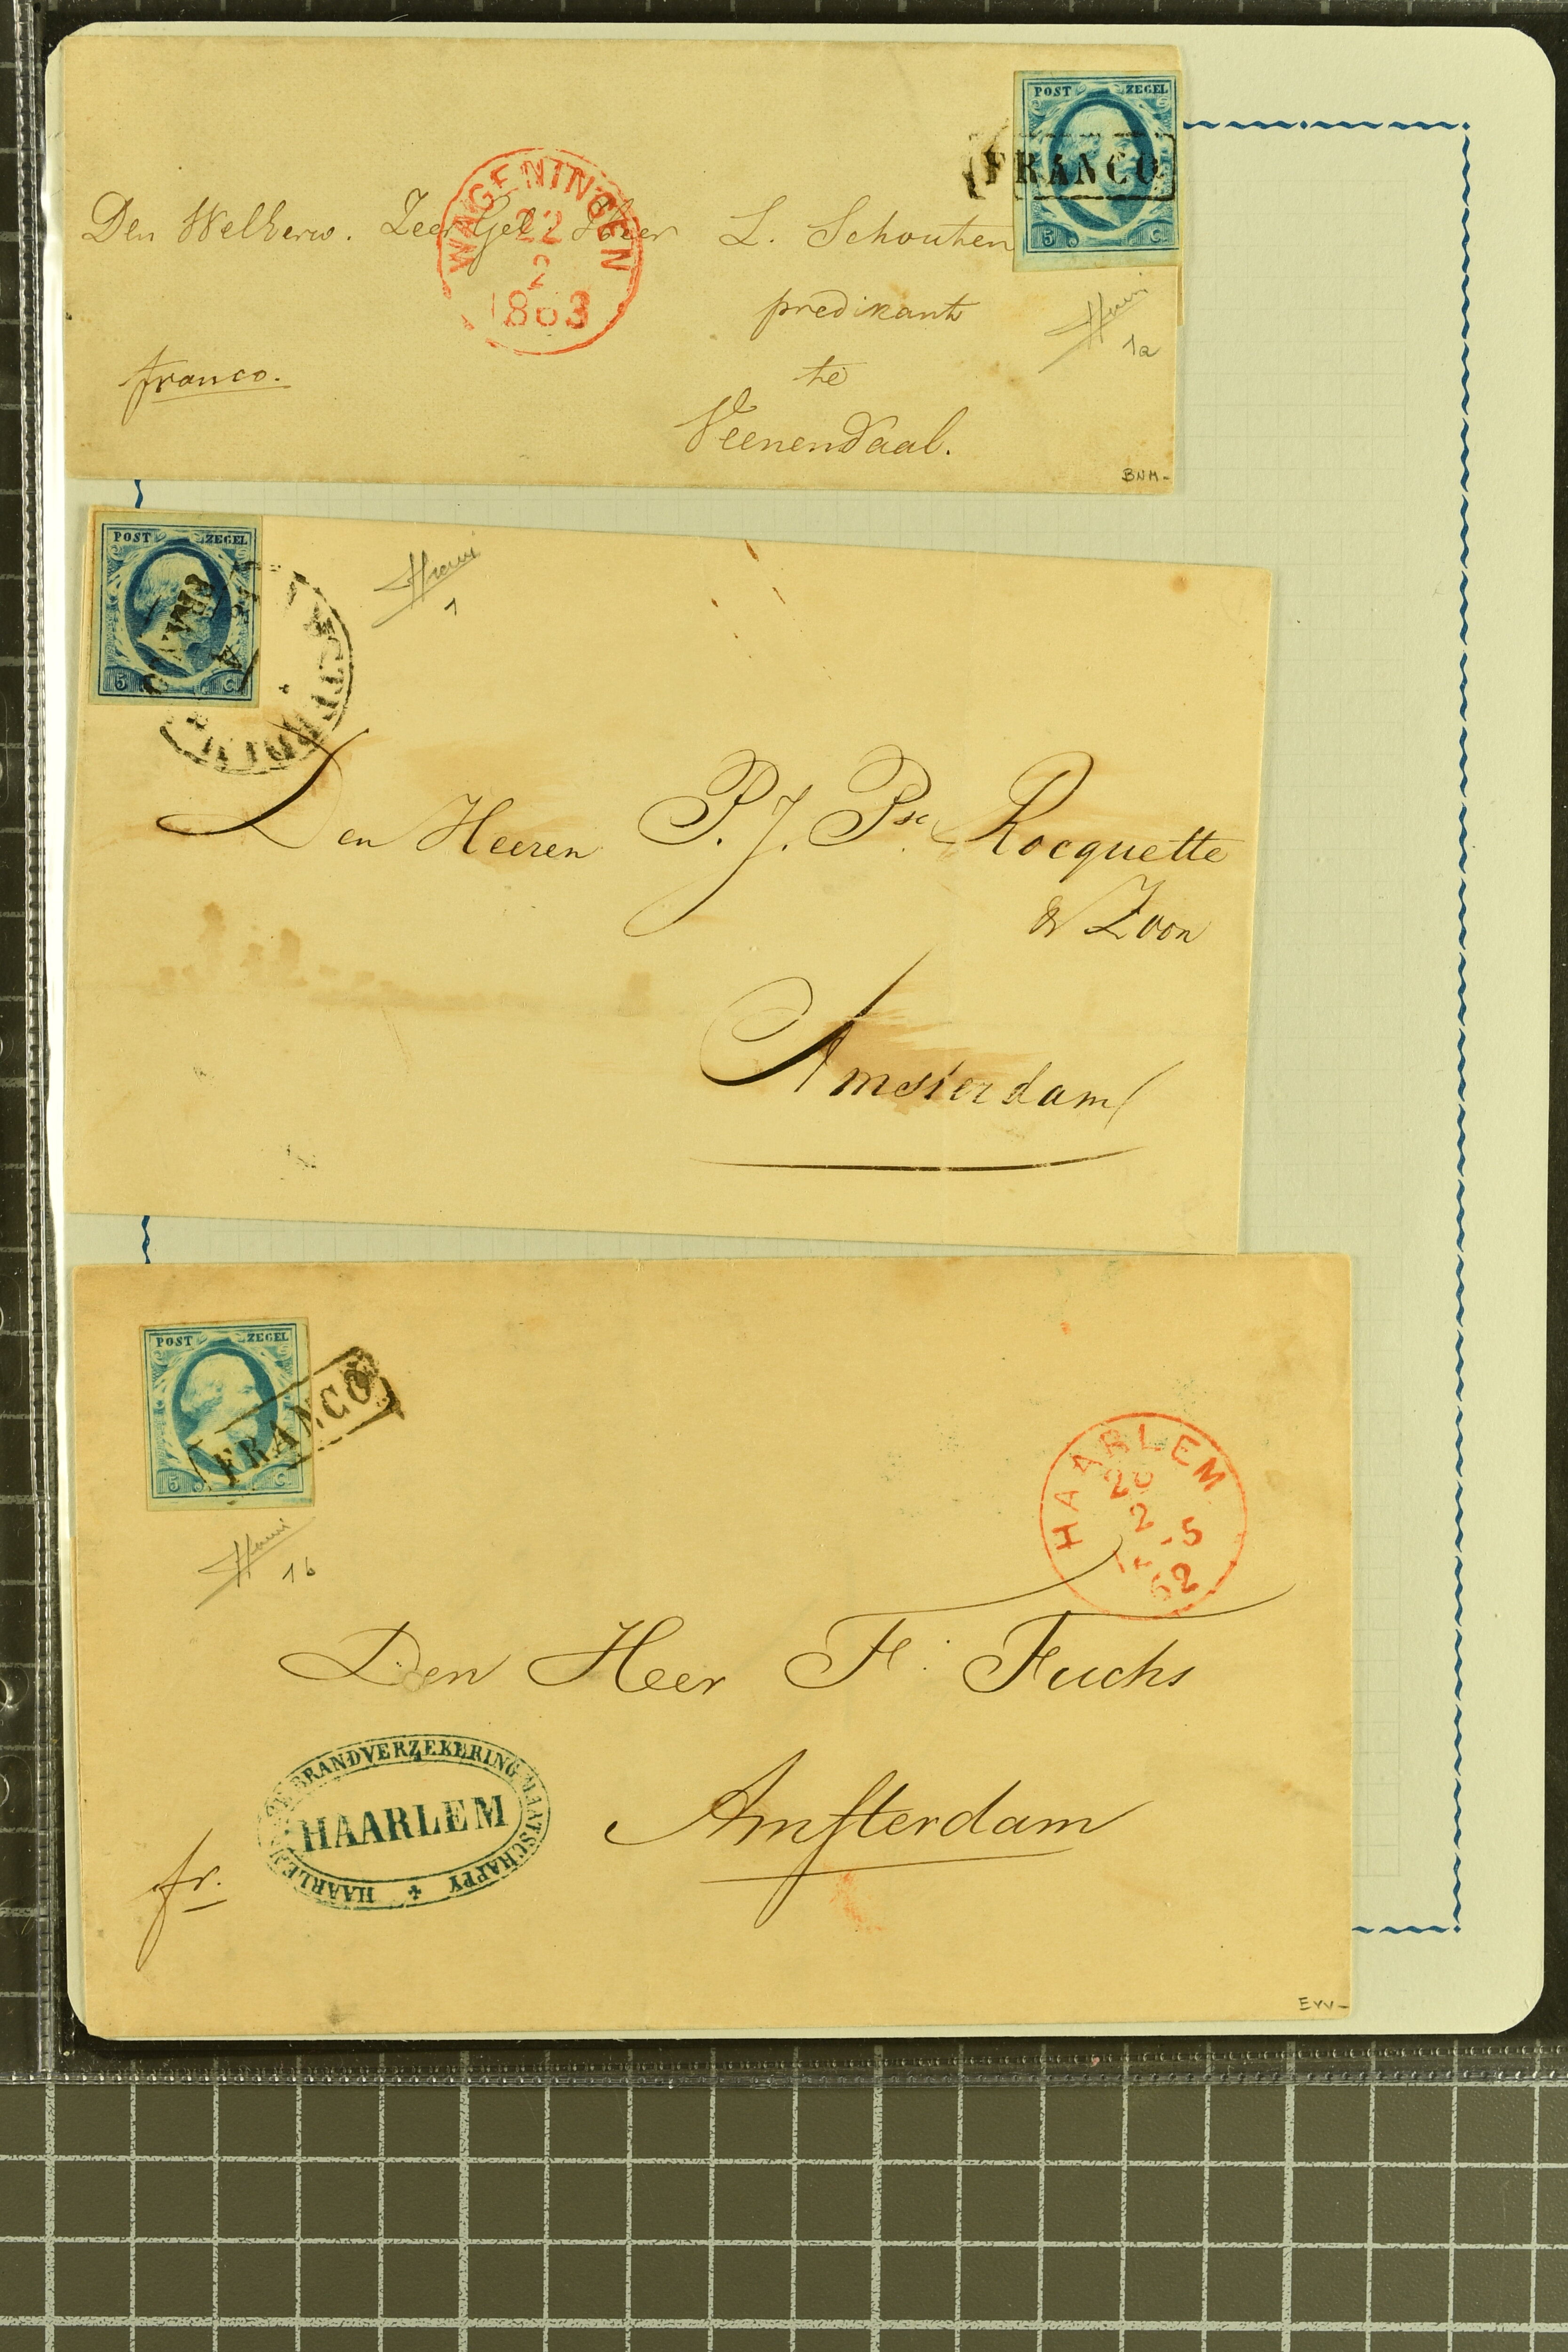 POST ZEGEL
FRANCO
5 C.
WAGENINGEN
22
2
1863
Den Welkerw. Zeer Gel. Heer L. Schouten
predikant
te
Veenendaal.
franco.
1a
BNM-
POST ZEGEL
FRANCO
5 C.
1
Den Heeren P. J. Psc Rocquette
& Zoon
Amsterdam
POST ZEGEL
FRANCO
5 C.
1b
HAARLEM
2
-5
62
Den Heer F. Fuchs
Amsterdam
fr.
BRANDVERZEKERING MAATSCHAPPY
HAARLEM
HAARLEM